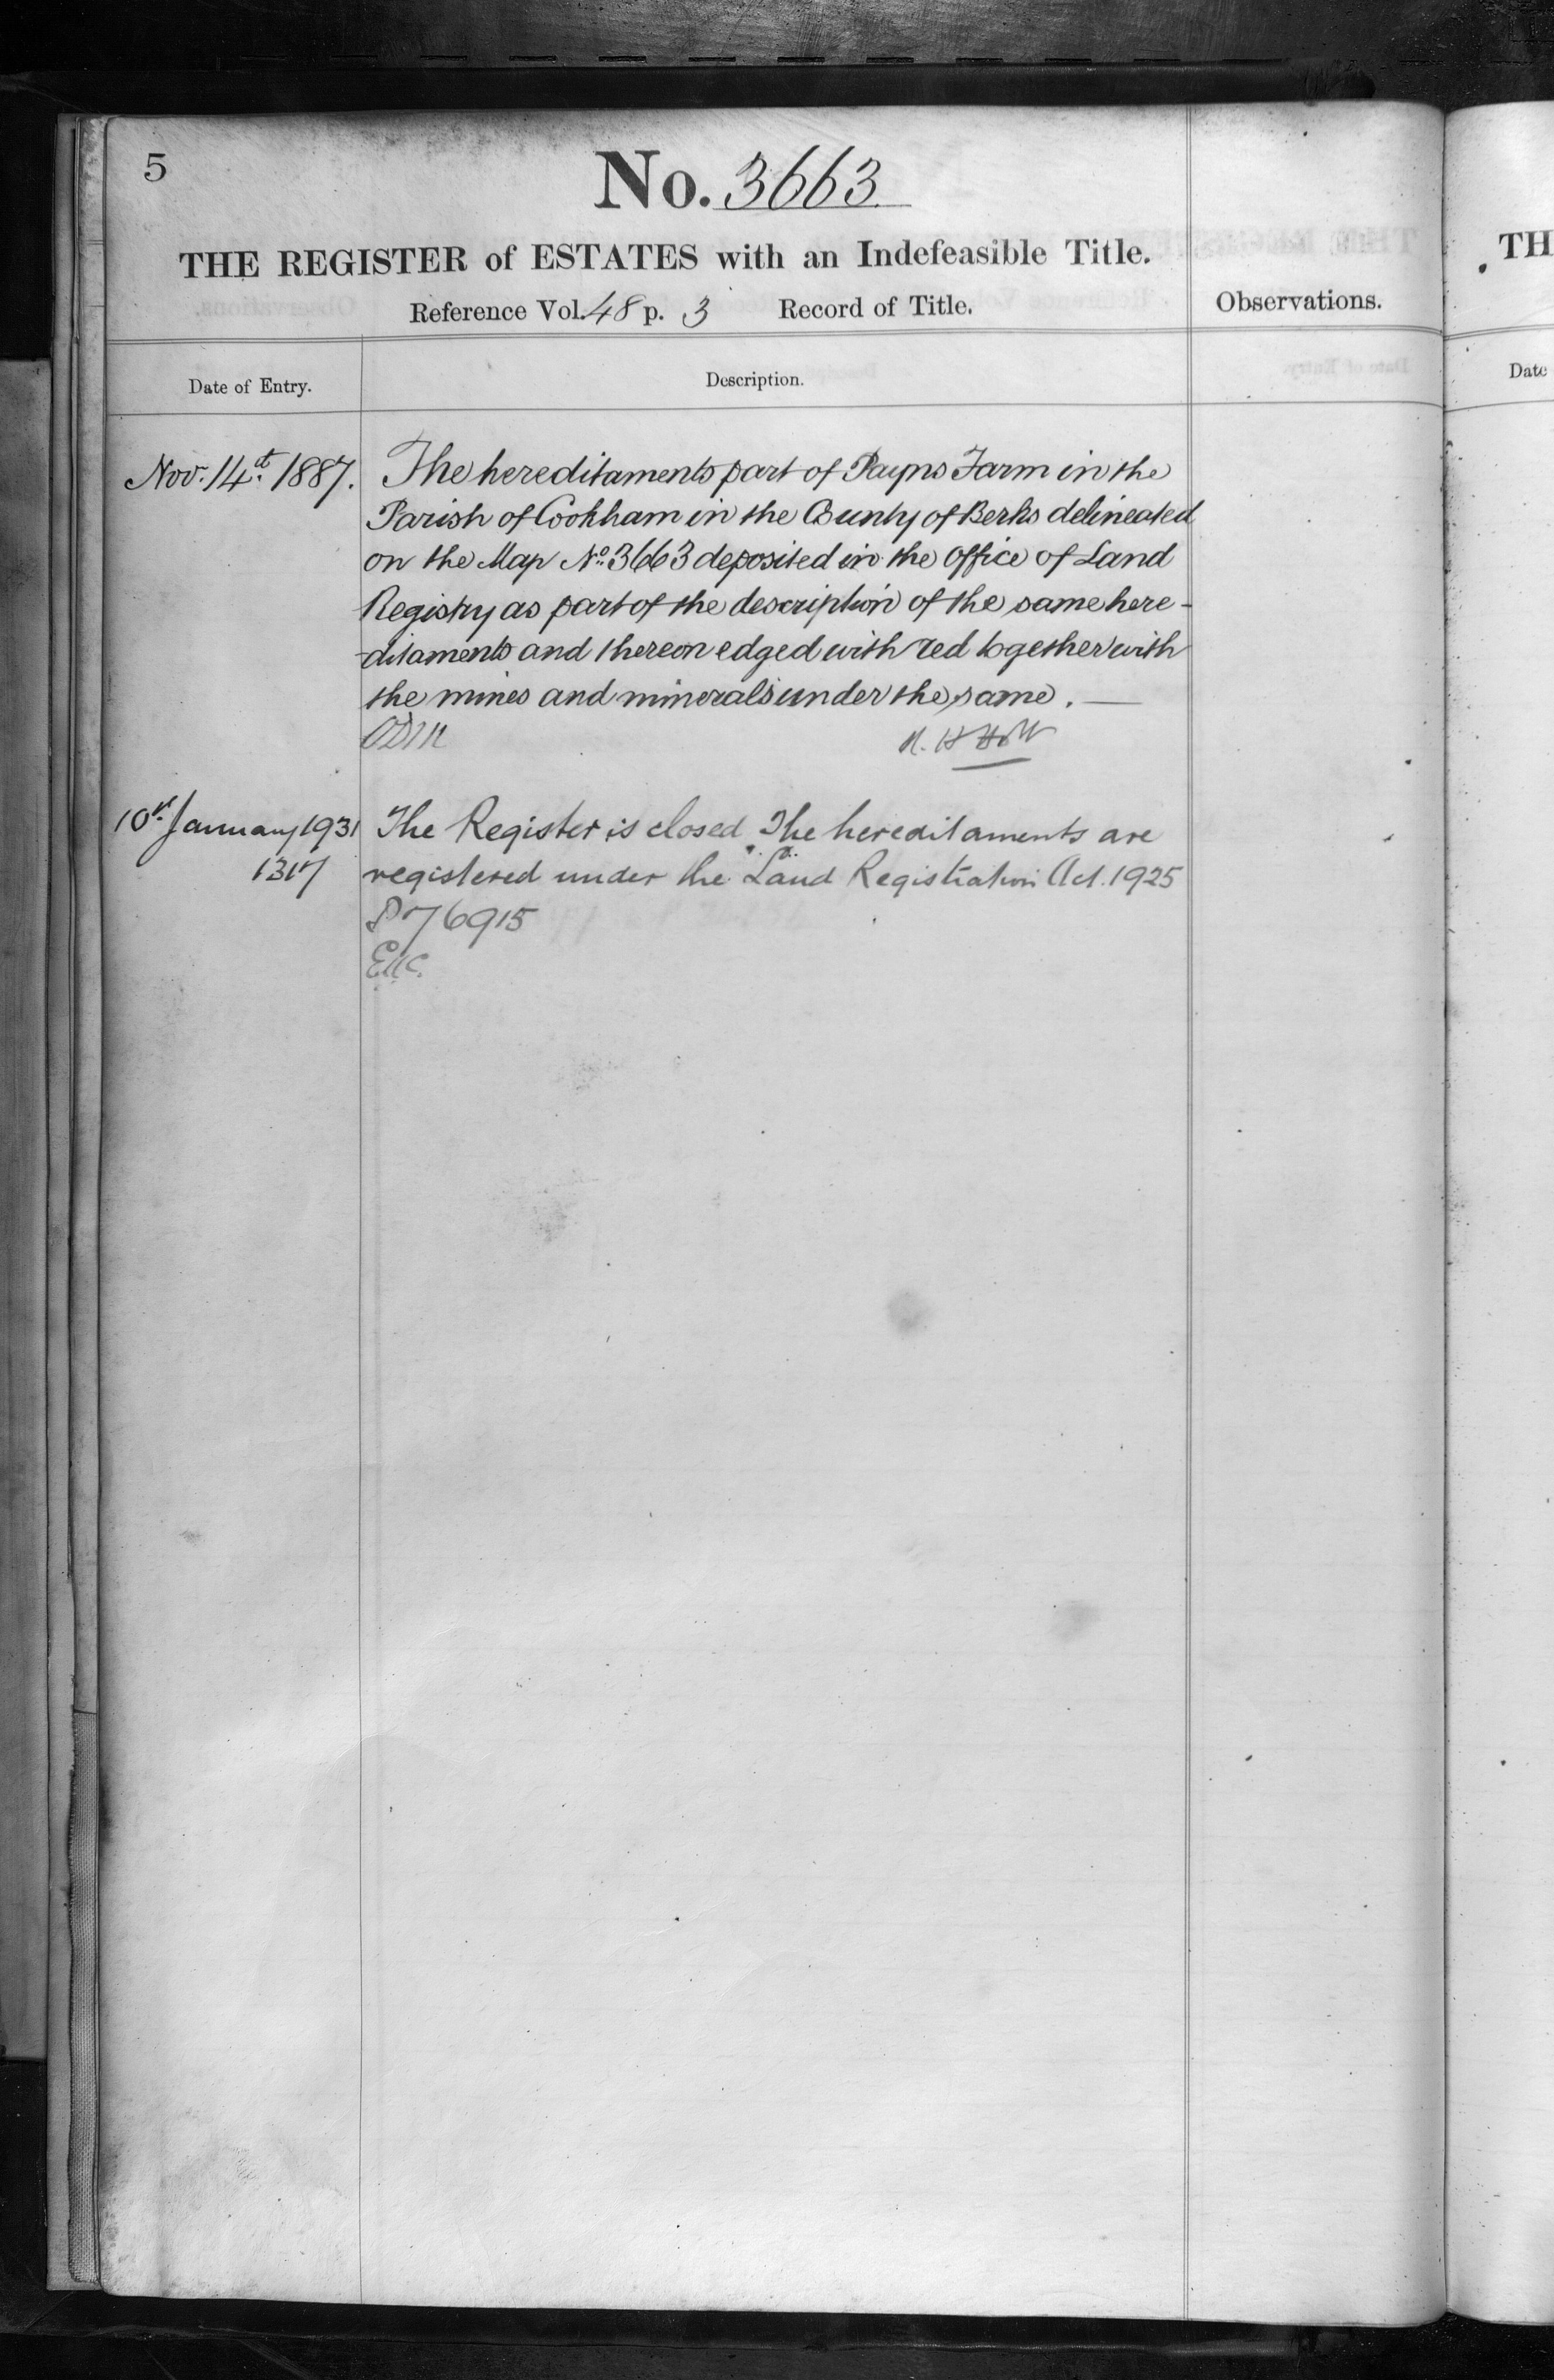 5
No. 3663
THE REGISTER of ESTATES with an Indefeasible Title.
Reference Vol. 48 p. 3 Record of Title.
Observations.
Date of Entry.
Description.
Nov. 14th 1887.
The hereditaments part of Payns Farm in the
Parish of Cookham in the County of Berks delineated
on the Map No. 3663 deposited in the Office of Land
Registry as part of the description of the same here-
-ditaments and thereon edged with red together with
the mines and minerals under the same. —
10th January 1931
1317
The Register is closed. The hereditaments are
registered under the Land Registration Act. 1925
P76915
TH
Date